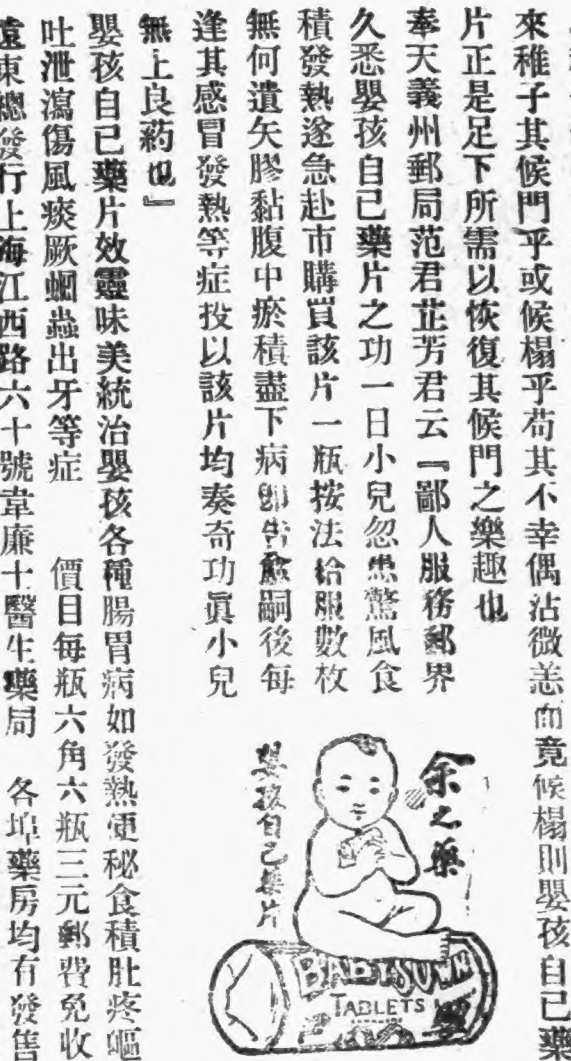 來稚子其候門乎或候榻乎苟其不幸偶沾微恙而竟候榻則嬰孩自己藥
片正是足下所需以恢復其候門之樂趣也
奉天義州郵局范君芷芳君云『鄙人服務郵界
久悉嬰孩自己藥片之功一日小兒忽患驚風食
積發熱遂急赴市購買該片一瓶按法給服數枚
無何遺矢膠黏腹中瘀積盡下病卽告愈嗣後每
逢其感冒發熱等症投以該片均奏奇功眞小兒
無上良葯也』
嬰孩自己藥片效靈味美統治嬰孩各種腸胃病如發熱便秘食積肚疼嘔
吐泄瀉傷風痰厥蛔蟲出牙等症 價目每瓶六角六瓶三元郵費免收
遠東總發行上海江西路六十號韋廉士醫生藥局 各埠藥房均有發售
余之藥
嬰孩自己藥片
BABY'S OWN
TABLETS